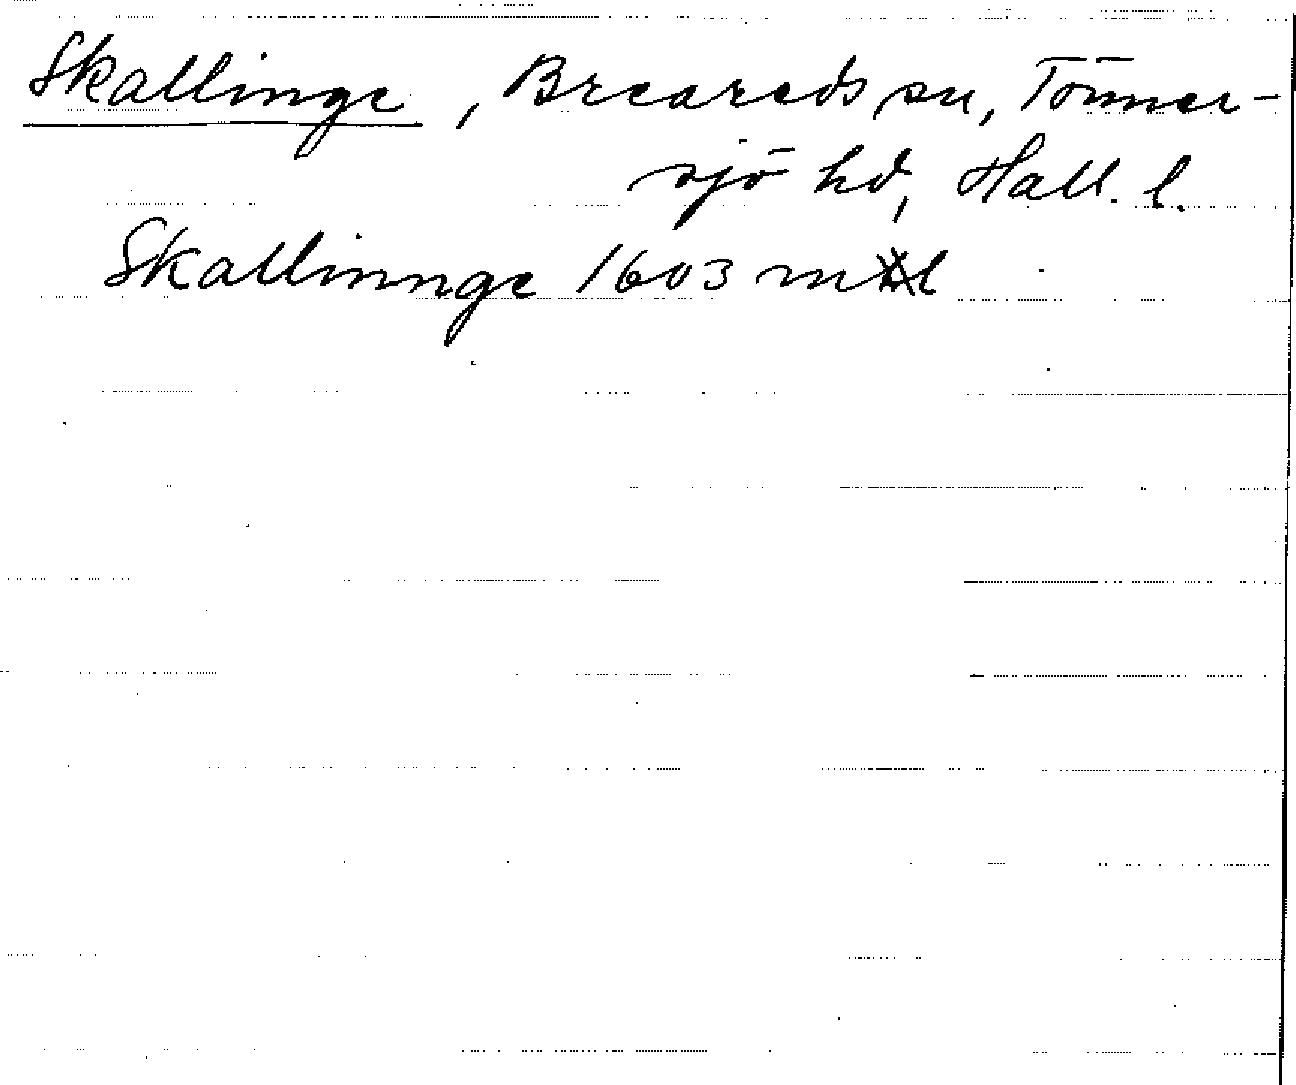 Skallinge, Breareds sn, Tönner-
sjö hd, Hall. l.
Skallinnge 1603 ml